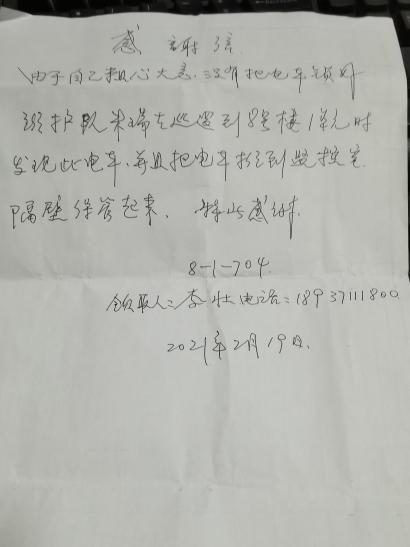 感谢信
由于自己粗心大意,没有把电车锁好
巡护队朱瑞在巡逻到8号楼1单元时
发现此电车,并且把电车推到监控室
隔壁保管起来,特此感谢.
8-1-704
领取人:李壮 电话:18937111800
2021年2月19日.